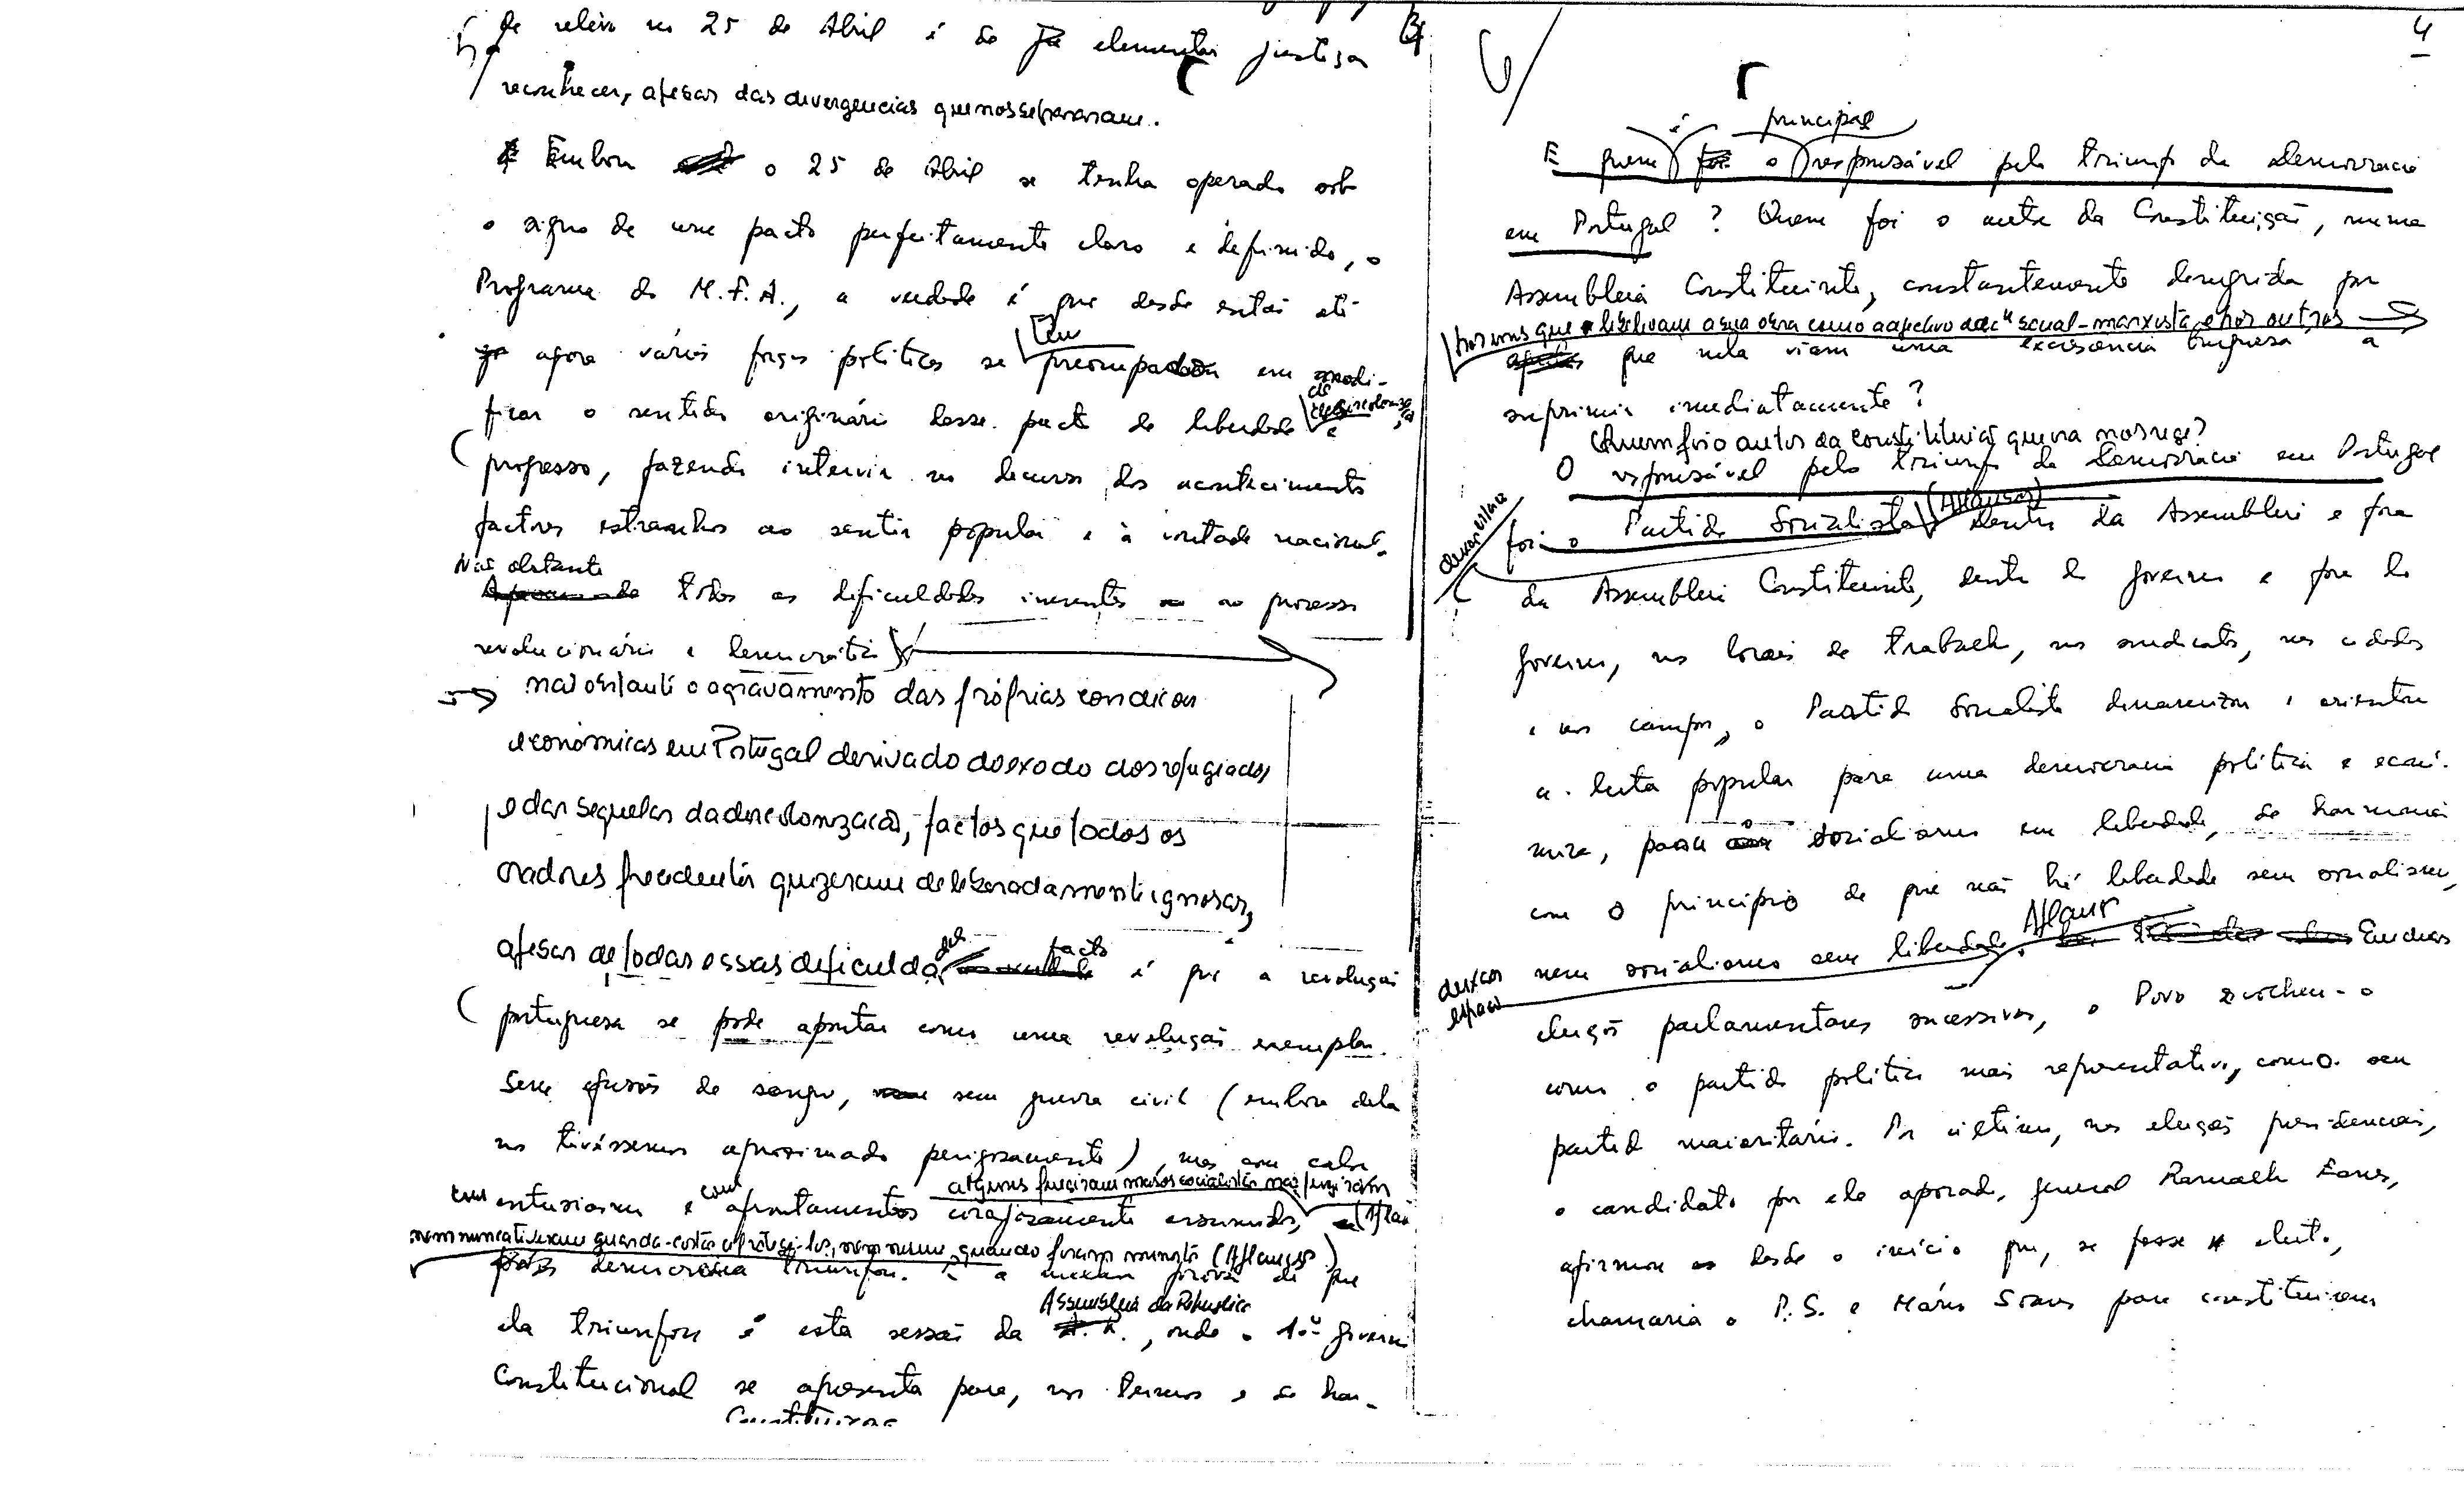 de relevo no 25 de Abril é de elementar justiça
reconhecer, apesar das divergencias que nos separaram.
Embora o 25 de Abril se tenha operado sob
o signo de um pacto perfeitamente claro e definido, o
Programa do M.F.A., a verdade é que desde então até
agora várias forças políticas se
têm
preocupado em modi-
ficar o sentido originário desse pacto de liberdade
de
descolonização
e
progresso, fazendo intervir no decurso dos acontecimentos
factores estranhos ao sentir popular e à vontade nacional.
Não obstante
Apesar de todas as dificuldades inerentes ao processo
revolucionário e democrático
não obstante o agravamento das próprias condições
económicas em Portugal derivado do exodo dos refugiados
e das sequelas da descolonização, factos que todos os
oradores precedentes quizeram deliberadamente ignorar,
apesar de todas essas dificuldades
facto
é que a revolução
portuguesa se pode apontar como uma revolução exemplar.
Sem efusão de sangue, sem guerra civil (embora dela
nos tivéssemos aproximado perigosamente), mas com calor
alguns fugiram mas os socialistas não fugiram
com entusiasmo e
com
afrontamentos corajosamente assumidos,
nem nunca tiveram guarda-costas a protegê-los, nem mesmo quando foram ministros (Aplausos)
democracia triunfou. E a maior prova de que
Assembleia da República
ela triunfou é esta sessão da A. R., onde o 1.º Governo
Constitucional se apresenta para, nos termos e de har-
4
6
é
principal
E quem foi o responsável pelo triunfo da Democracia
em Portugal? Quem foi o autor da Constituição, numa
Assembleia Constituinte, constantemente denegrida por
por uns que
a sua obra como
marxista e por outros
que nela viam uma excrescência burguesa a
suprimir imediatamente?
Quem foi o autor da constituição que ora nos rege?
O responsável pelo triunfo da Democracia em Portugal
foi o Partido Socialista
(Aplausos)
Dentro da Assembleia e fora
da Assembleia Constituinte, dentro do Governo e fora do
Governo, nos locais de trabalho, nos sindicatos, nas cidades
e nos campos, o Partido Socialista dinamizou e orientou
a luta popular para uma democracia política e econó-
mica, para o socialismo em liberdade, de harmonia
com o princípio de que não há liberdade sem socialismo,
Aplausos
deixar
espaço
nem socialismo sem liberdade. Em duas
eleições parlamentares sucessivas, o Povo escolheu-o
como o partido político mais representativo, como o seu
partido maioritário. Por último, nas eleições presidenciais,
o candidato por ele apoiado, general Ramalho Eanes,
afirmou desde o início que, se fosse eleito,
chamaria o P.S. e Mário Soares para constituirem